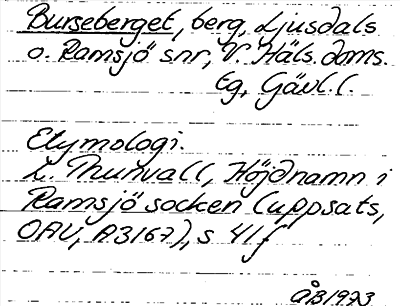 Burseberget, berg, Ljusdals
o. Ramsjö snr, V. Häls. doms.
tg, Gävl. l.
Etymologi.
L. Thunvall, Höjdnamn i
Ramsjö socken (uppsats,
OAU, A3167), s 41 f
ÅB1973